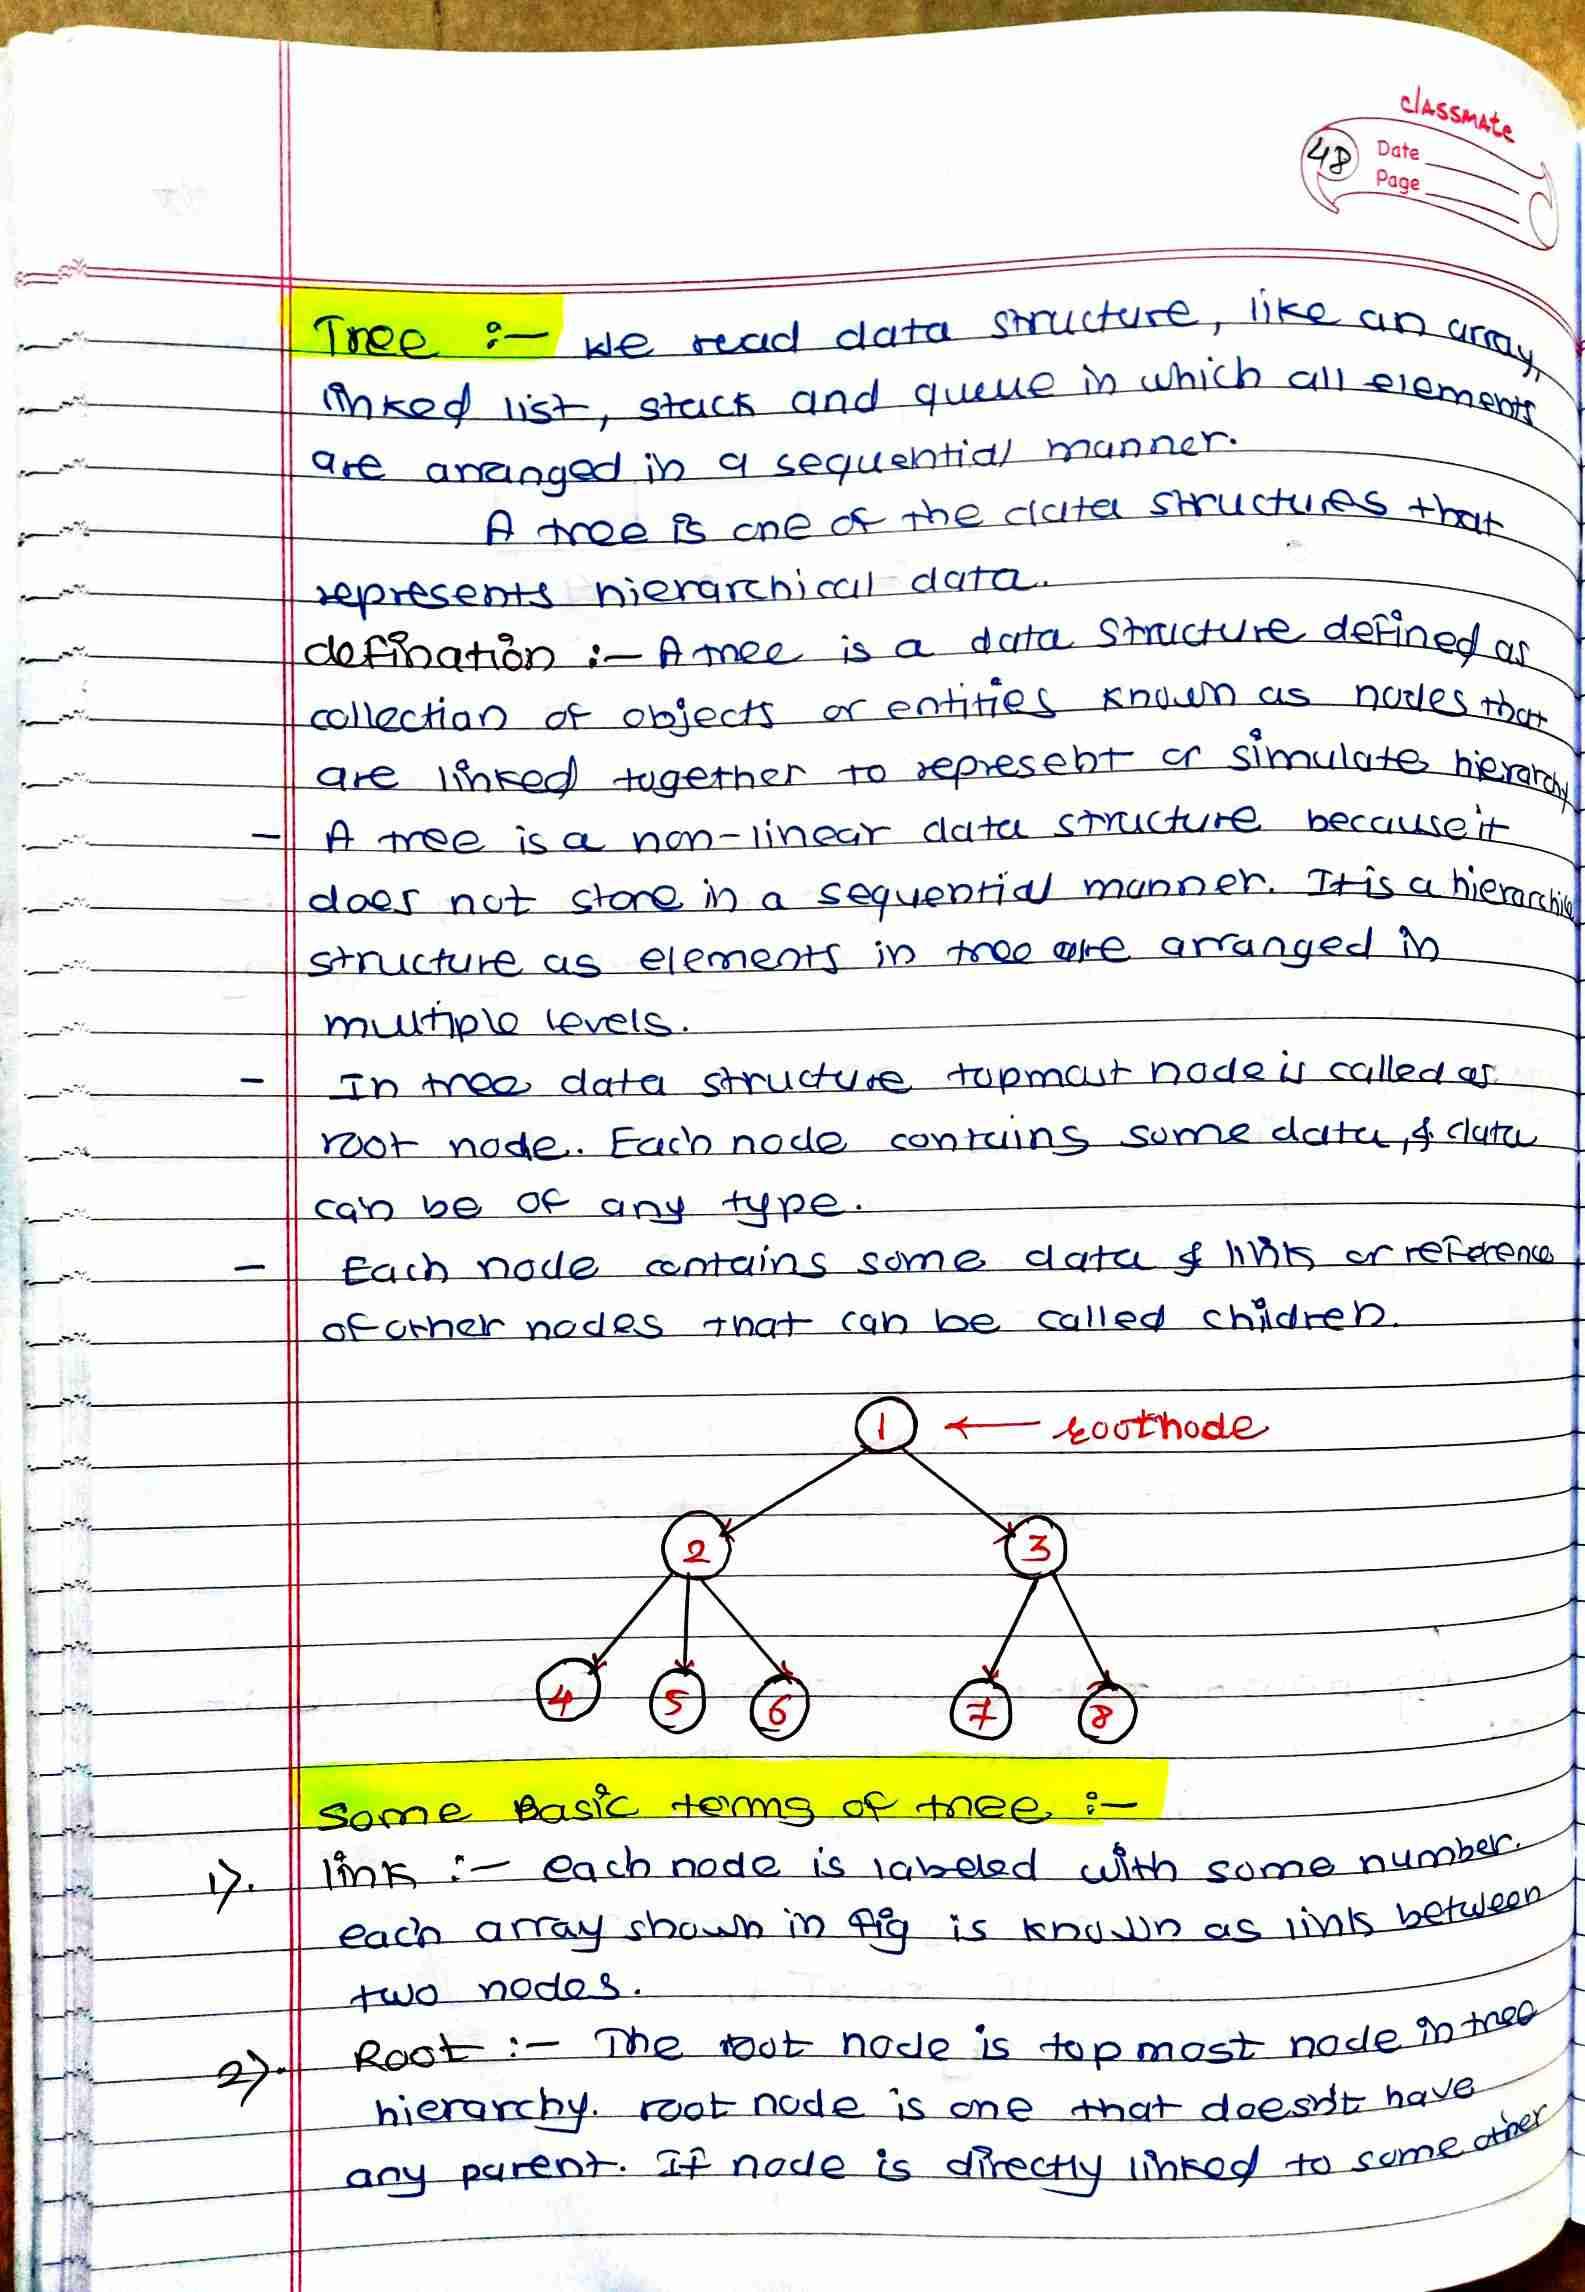 classmate
48
Date
Page
Tree :- We read data structure, like an array,
linked list, stack and queue in which all elements
are arranged in a sequential manner.
A tree is one of the data structures that
represents hierarchical data.
defination :- A tree is a data structure defined as
collection of objects or entities known as nodes that
are linked together to represebt or simulate hierarchy
- A tree is a non-linear data structure because it
does not store in a sequential manner. It is a hierarchica
structure as elements in tree are arranged in
multiple levels.
- In tree data structure topmost node is called as
root node. Each node contains some data, & data
can be of any type.
- Each node contains some data & link or reference
of other nodes that can be called children.
1 ← rootnode
2 3
4 5 6 7 8
Some Basic terms of tree :-
1). link :- each node is labeled with some number.
each array shown in fig is known as link between
two nodes.
2). Root :- The root node is topmost node in tree
hierarchy. root node is one that doesn't have
any parent. If node is directly linked to some other